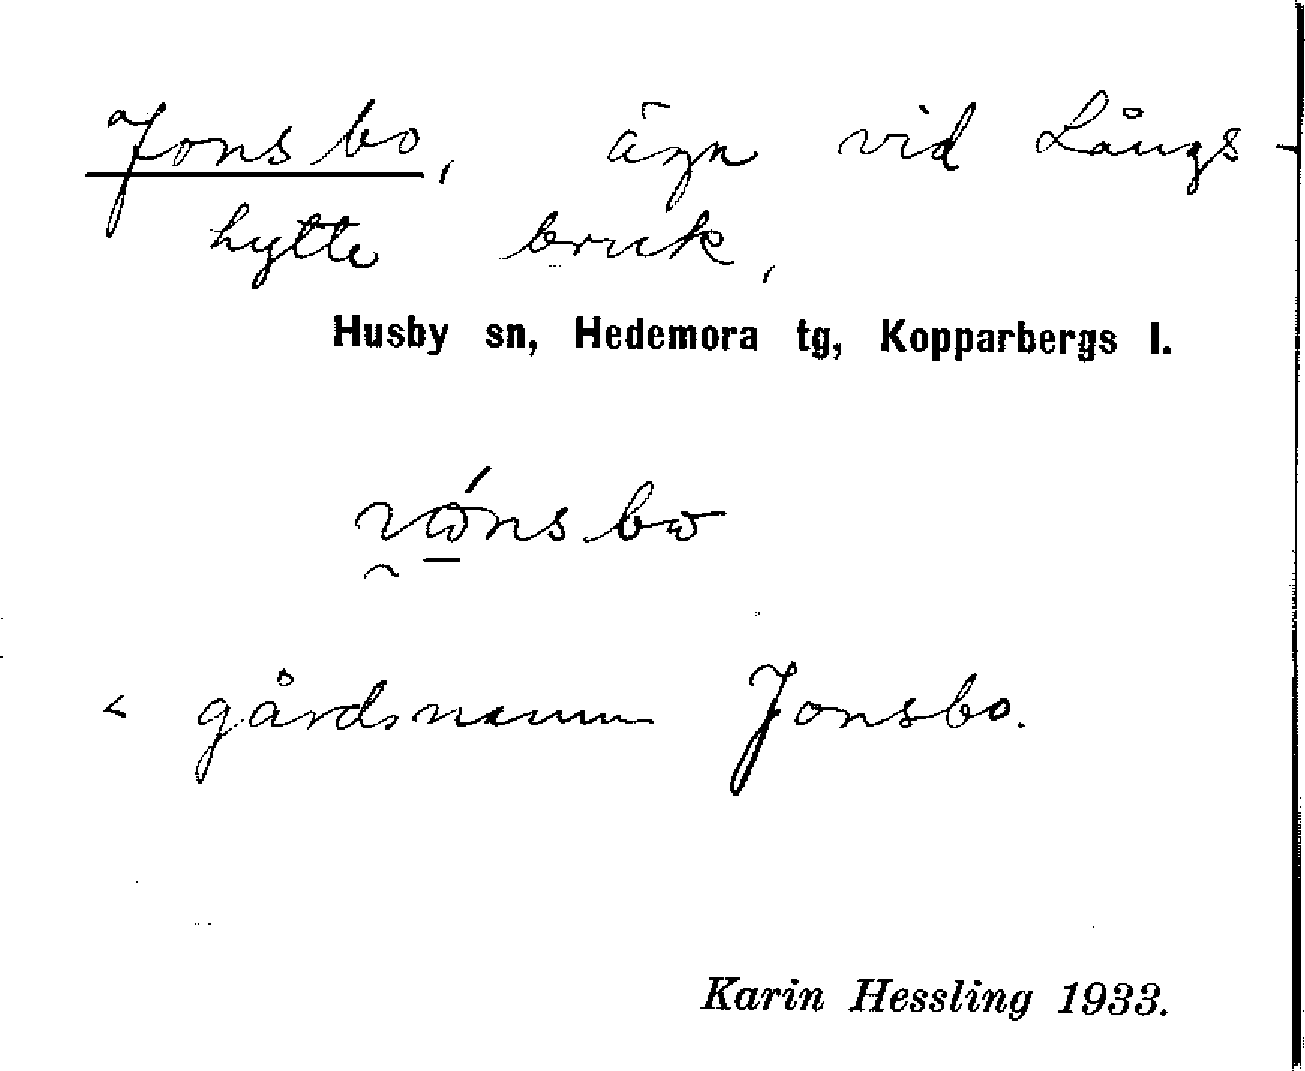 Jonsbo, ägn vid Långs-
hytte bruk,
Husby sn, Hedemora tg, Kopparbergs l.
< gårdsnamn Jonsbo.
Karin Hessling 1933.